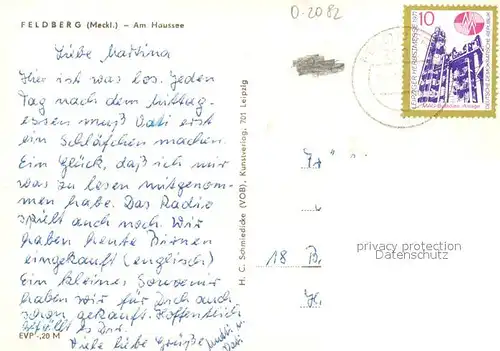 FELDBERG (Meckl.) – Am Haussee
0-2082
Liebe Martina
Hier ist was los. Jeden
Tag nach dem Mittag-
essen muß Vati erst
ein Schläfchen machen.
Ein Glück, daß ich mir
was zu lesen mitgenom-
men habe. Das Radio
spielt auch noch. Wir
haben heute Birnen
eingekauft (englisch)
Ein kleines Souvenir
haben wir für Dich auch
schon gekauft. Hoffentlich
gefällt es Dir.
Viele liebe Grüße
Mutti u.
Vati
EVP -,20 M
H. C. Schmiedicke (VOB), Kunstverlag, 701 Leipzig
10
LEIPZIGER HERBSTMESSE 1971
DEUTSCHE DEMOKRATISCHE REPUBLIK
18 B.
privacy protection
Datenschutz